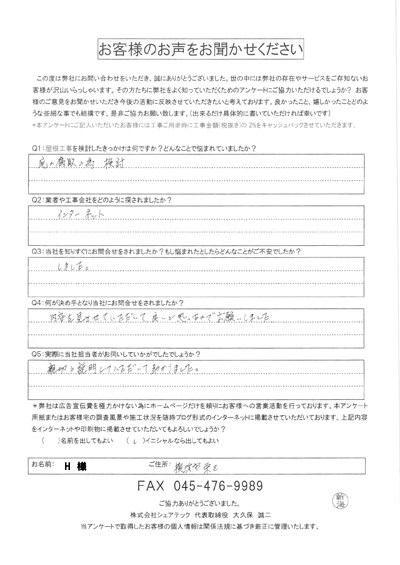 お客様のお声をお聞かせください
この度は弊社にお問い合わせをいただき、誠にありがとうございました。世の中には弊社の存在やサービスをご存知ないお
客様が沢山いらっしゃいます。その方たちに弊社をよく知っていただくためのアンケートにご協力いただけるでしょうか？ お客
様のご意見をお聞かせいただき今後の活動に反映させていただきたいと考えております。良かったこと、嬉しかったことどのよ
うな些細な事でも結構です。是非ご協力お願い致します。(出来るだけ具体的に書いていただければ幸いです)
*本アンケートにご記入いただいたお客様には工事ご用命時に工事金額(税抜き)の 2%をキャッシュバックさせていただきます。
Q1:屋根工事を検討したきっかけは何ですか？どんなことで悩まれていましたか？
検討
Q2:業者や工事会社をどのように探されましたか？
インターネット
Q3:当社を知りすぐにお問合せをされましたか？もし悩まれたとしたらどんなことがご不安でしたか？
しました。
Q4:何が決め手となり当社にお問合せをされましたか？
内容を見させていただいて良いと思ったのでお願いしました
Q5:実際に当社担当者がお伺いしていかがでしたでしょうか？
親切に説明していただいて助かりました。
＊弊社は広告宣伝費を極力かけない為にホームページだけを頼りにお客様への営業活動を行っております。本アンケート
用紙またはお客様宅の調査風景や施工状況を随時ブログ形式のインターネットに掲載させていただいております。上記内容
をインターネットや印刷物に掲載させていただいてもよろしいでしょうか？
( )名前を出してもよい ( レ )イニシャルなら出してもよい
お名前: H 様 ご住所:
FAX 045-476-9989
ご協力ありがとうございました。
株式会社シェアテック 代表取締役 大久保 誠二
当アンケートで取得したお客様の個人情報は関係法規に基づき厳正に管理いたします。